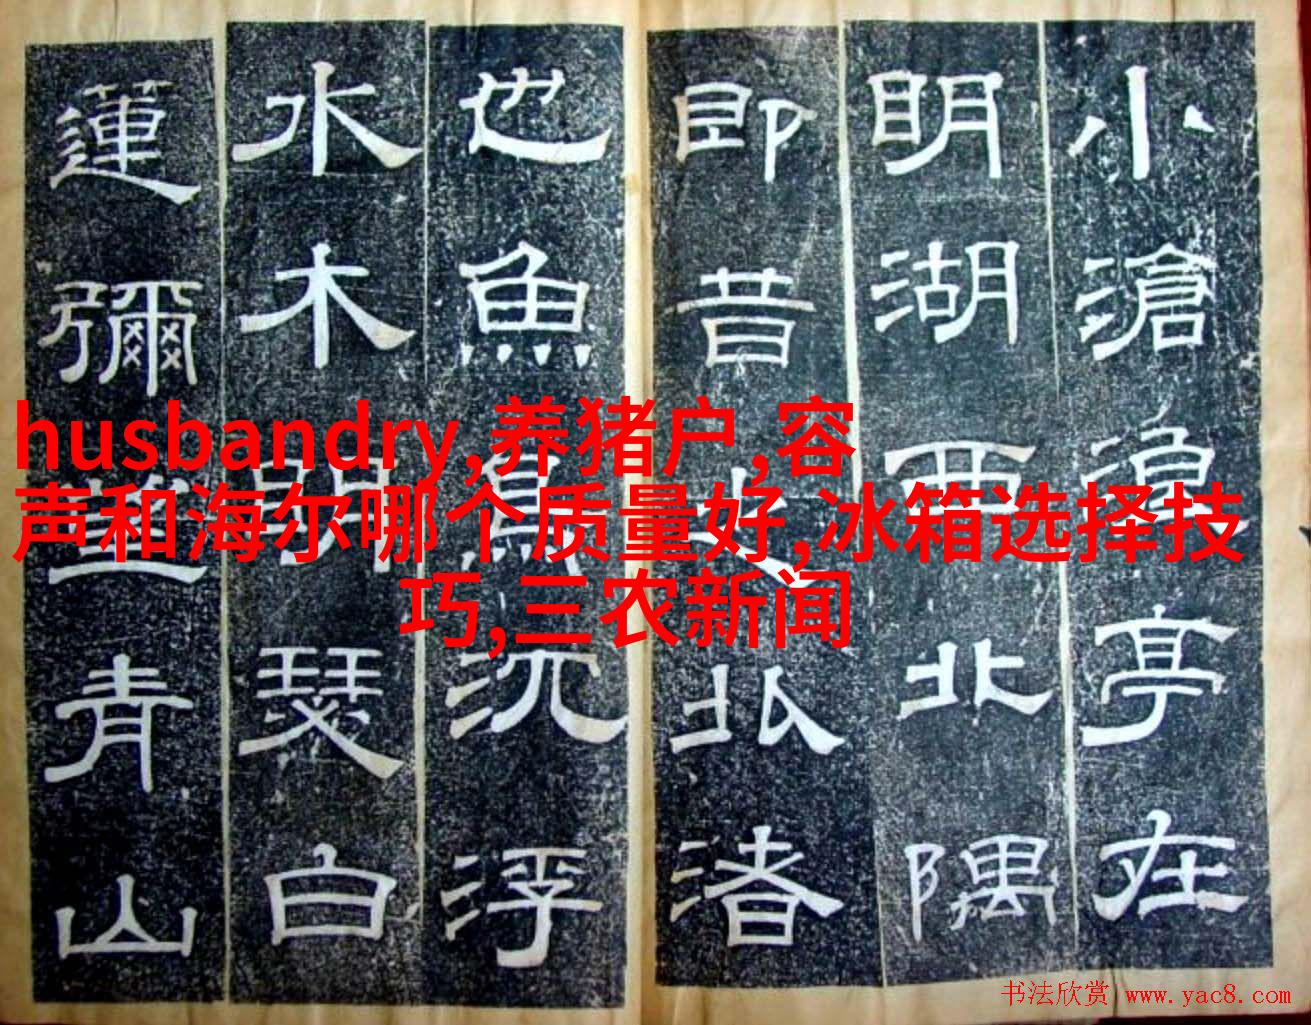 小滄浪亭在
明湖西北隅
即昔之北渚
也魚鳥沉浮
水木明瑟白
蓮彌青山
husbandry,养猪户,容
声和海尔哪个质量好,冰箱选择技
巧,三农新闻
书法欣赏 www.yac8.com